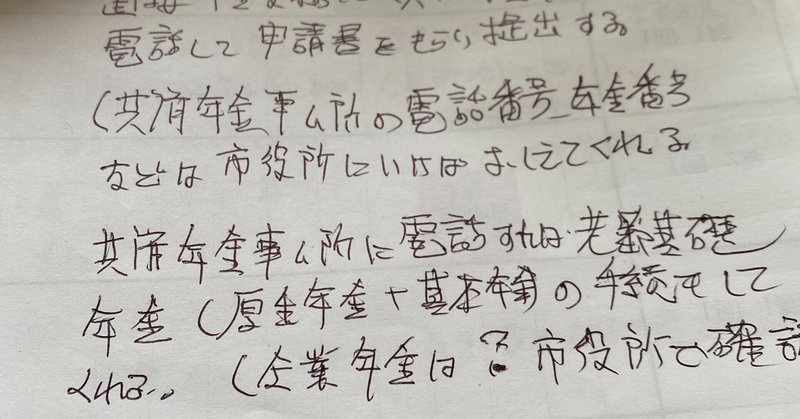 電話して申請書をもらい提出する
(共済年金事ム所の電話番号_年金番号
などは市役所にいけばおしえてくれる
共済年金事ム所に電話すれば老齢基礎
年金(厚生年金+基本年金)の手続をして
くれる。(企業年金は?市役所で確認